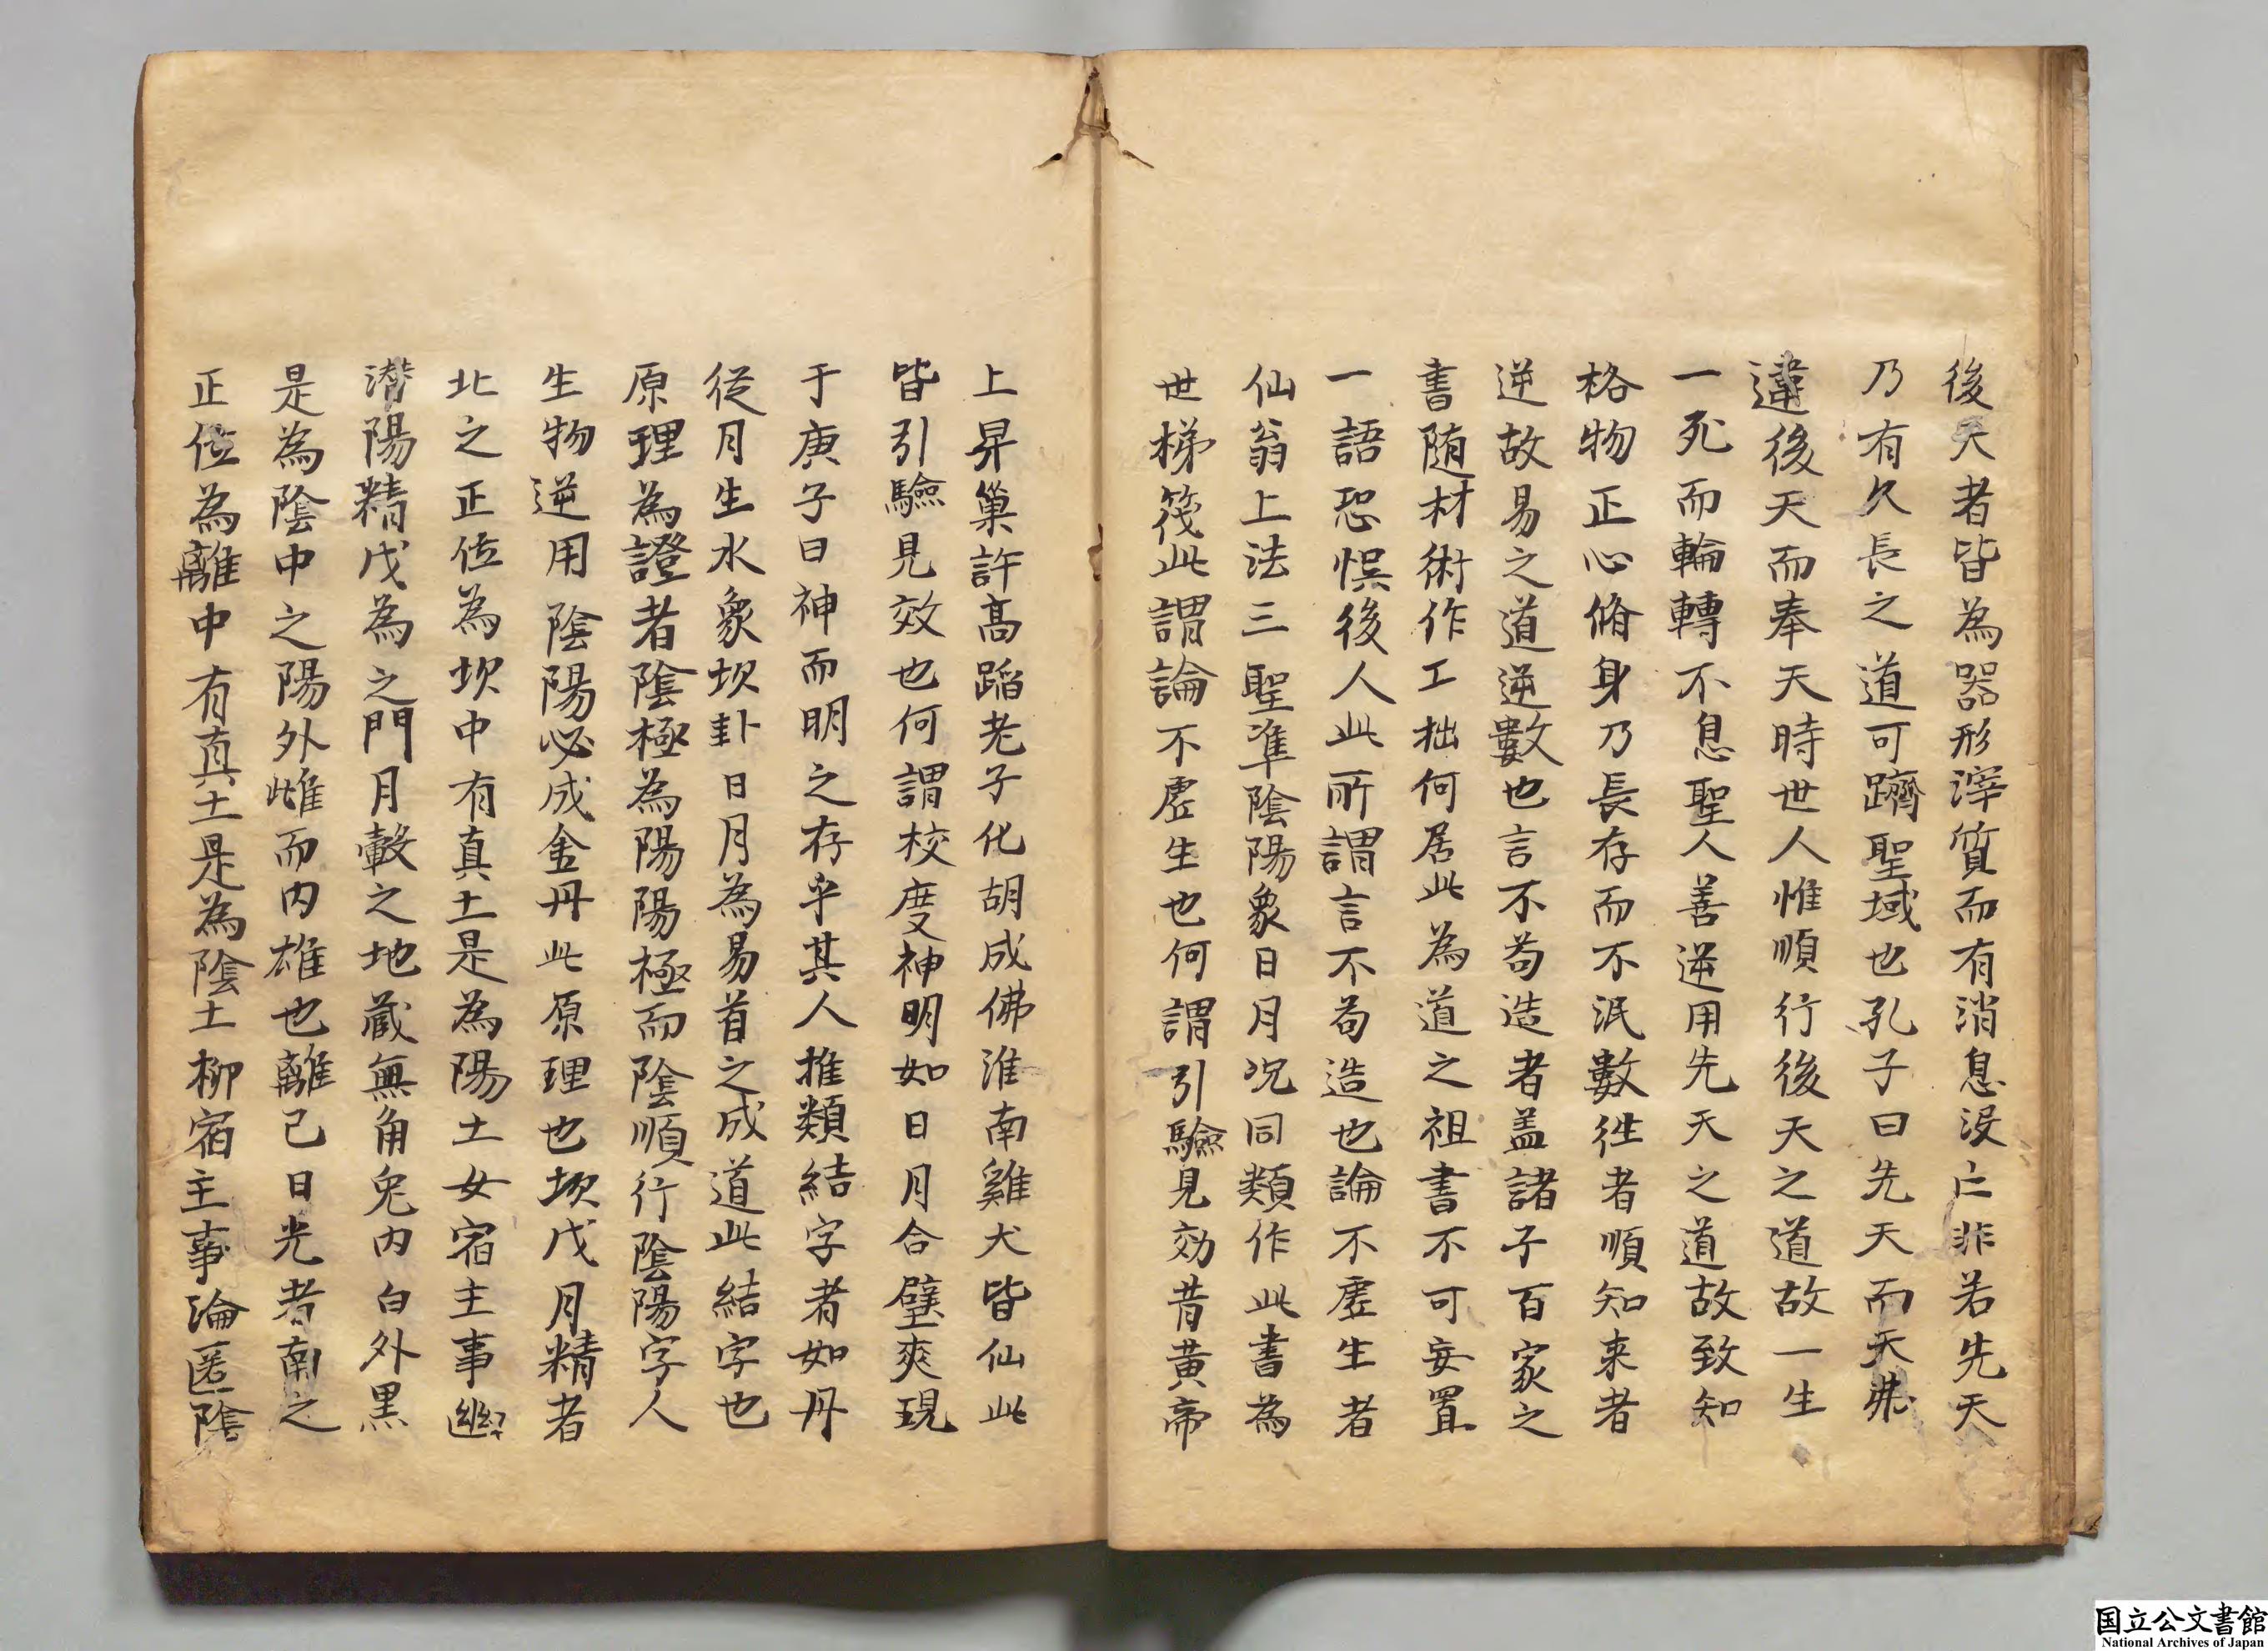 後天者皆為器形滓質而有消息没亡非若先天
乃有久長之道可躋聖域也孔子曰先天而天弗
違後天而奉天時世人惟順行後天之道故一生
一死而輪轉不息聖人善逆用先天之道故致知
格物正心脩身乃長存而不泯數徃者順知来者
逆故易之道逆數也言不苟造者盖諸子百家之
書随材術作工拙何居此為道之祖書不可妄置
一語恐悞後人此所謂言不苟造也論不虚生者
仙翁上法三聖準陰陽象日月况同類作此書為
世梯筏此謂論不虚生也何謂引驗見効昔黄帝
上昇巢許髙蹈老子化胡成佛淮南雞犬皆仙此
皆引驗見效也何謂校度神明如日月合璧爽現
于庚子曰神而明之存乎其人推類結字者如丹
從月生水象坎卦日月為易首之成道此結字也
原理為證者陰極為陽陽極而陰順行陰陽字人
生物逆用陰陽必成金丹此原理也坎戊月精者
北之正位為坎中有真土是為陽土女宿主事幽
潜陽精戊為之門月轂之地蔵無角兔内白外黒
是為陰中之陽外雌而内雄也離己日光者南之
正位為離中有真土是為陰土柳宿主事淪匿陰
国立公文書館
National Archives of Japan